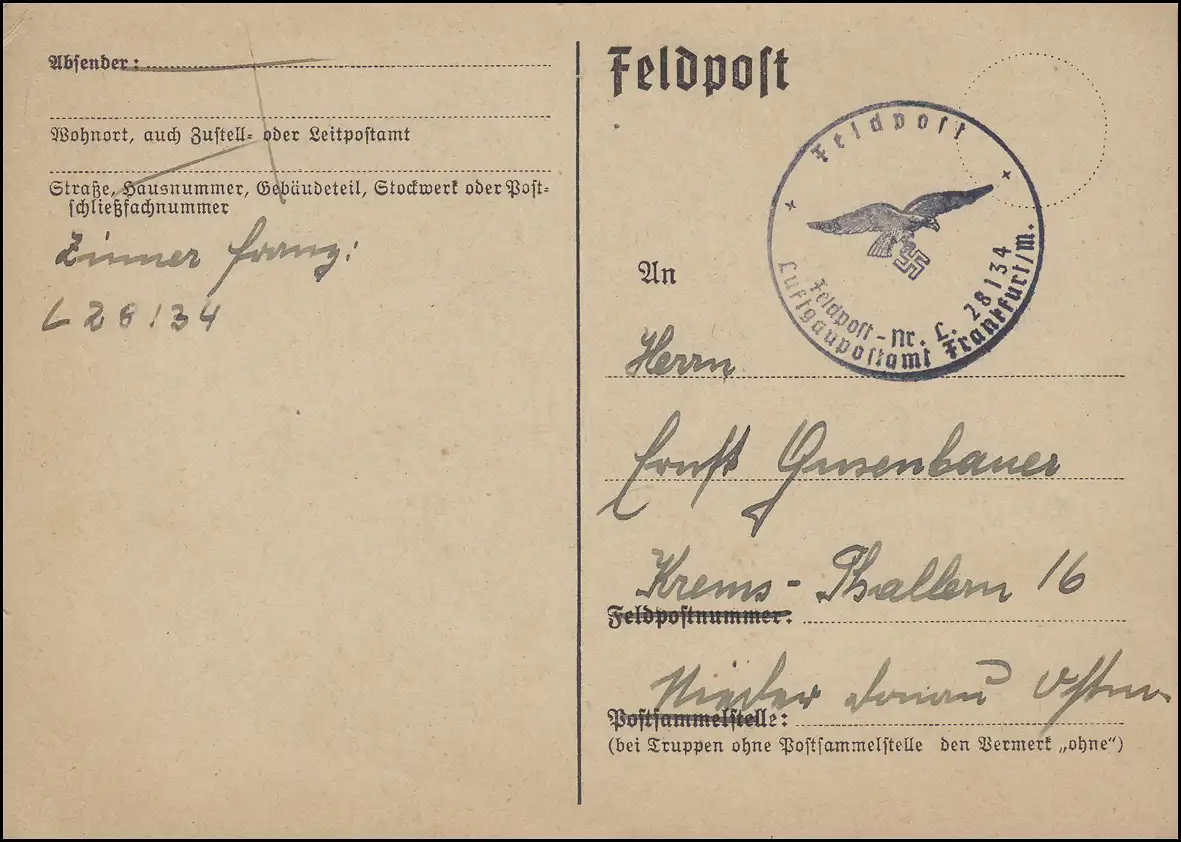 Absender:
Wohnort, auch Zustell- oder Leitpostamt
Straße, Hausnummer, Gebäudeteil, Stockwerk oder Post-
schließfachnummer
Zinner Franz:
L 28134
Feldpost
Feldpost
Feldpost-Nr. L. 28134
Luftgaupostamt Frankfurt/M.
An
Herrn
Ernst Gusenbauer
Krems - Thallern 16
Feldpostnummer:
Nieder Donau Ostm.
Postsammelstelle:
(bei Truppen ohne Postsammelstelle den Vermerk „ohne“)